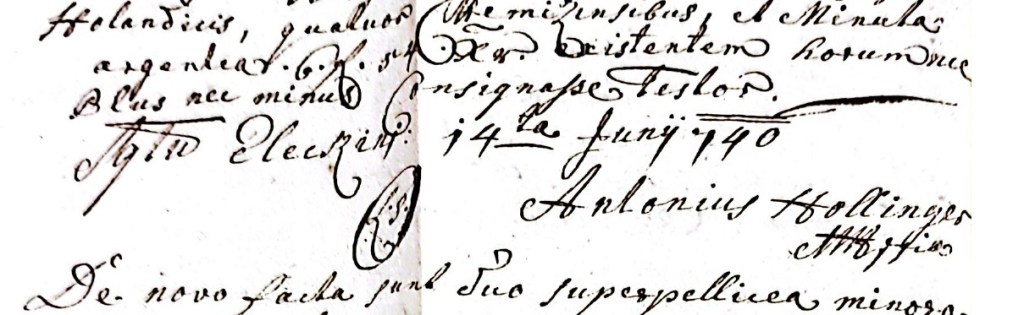 Holandicis, quatuor Cremizensibus, et Minuta
argentea. 6. f. 54 Xr. Existentem horum nec
Plus nec minus Consignasse Testor.
14 ta Junij 740
L.S.
Antonius Hollinger
De novo facta sunt Duo superpellicea minora